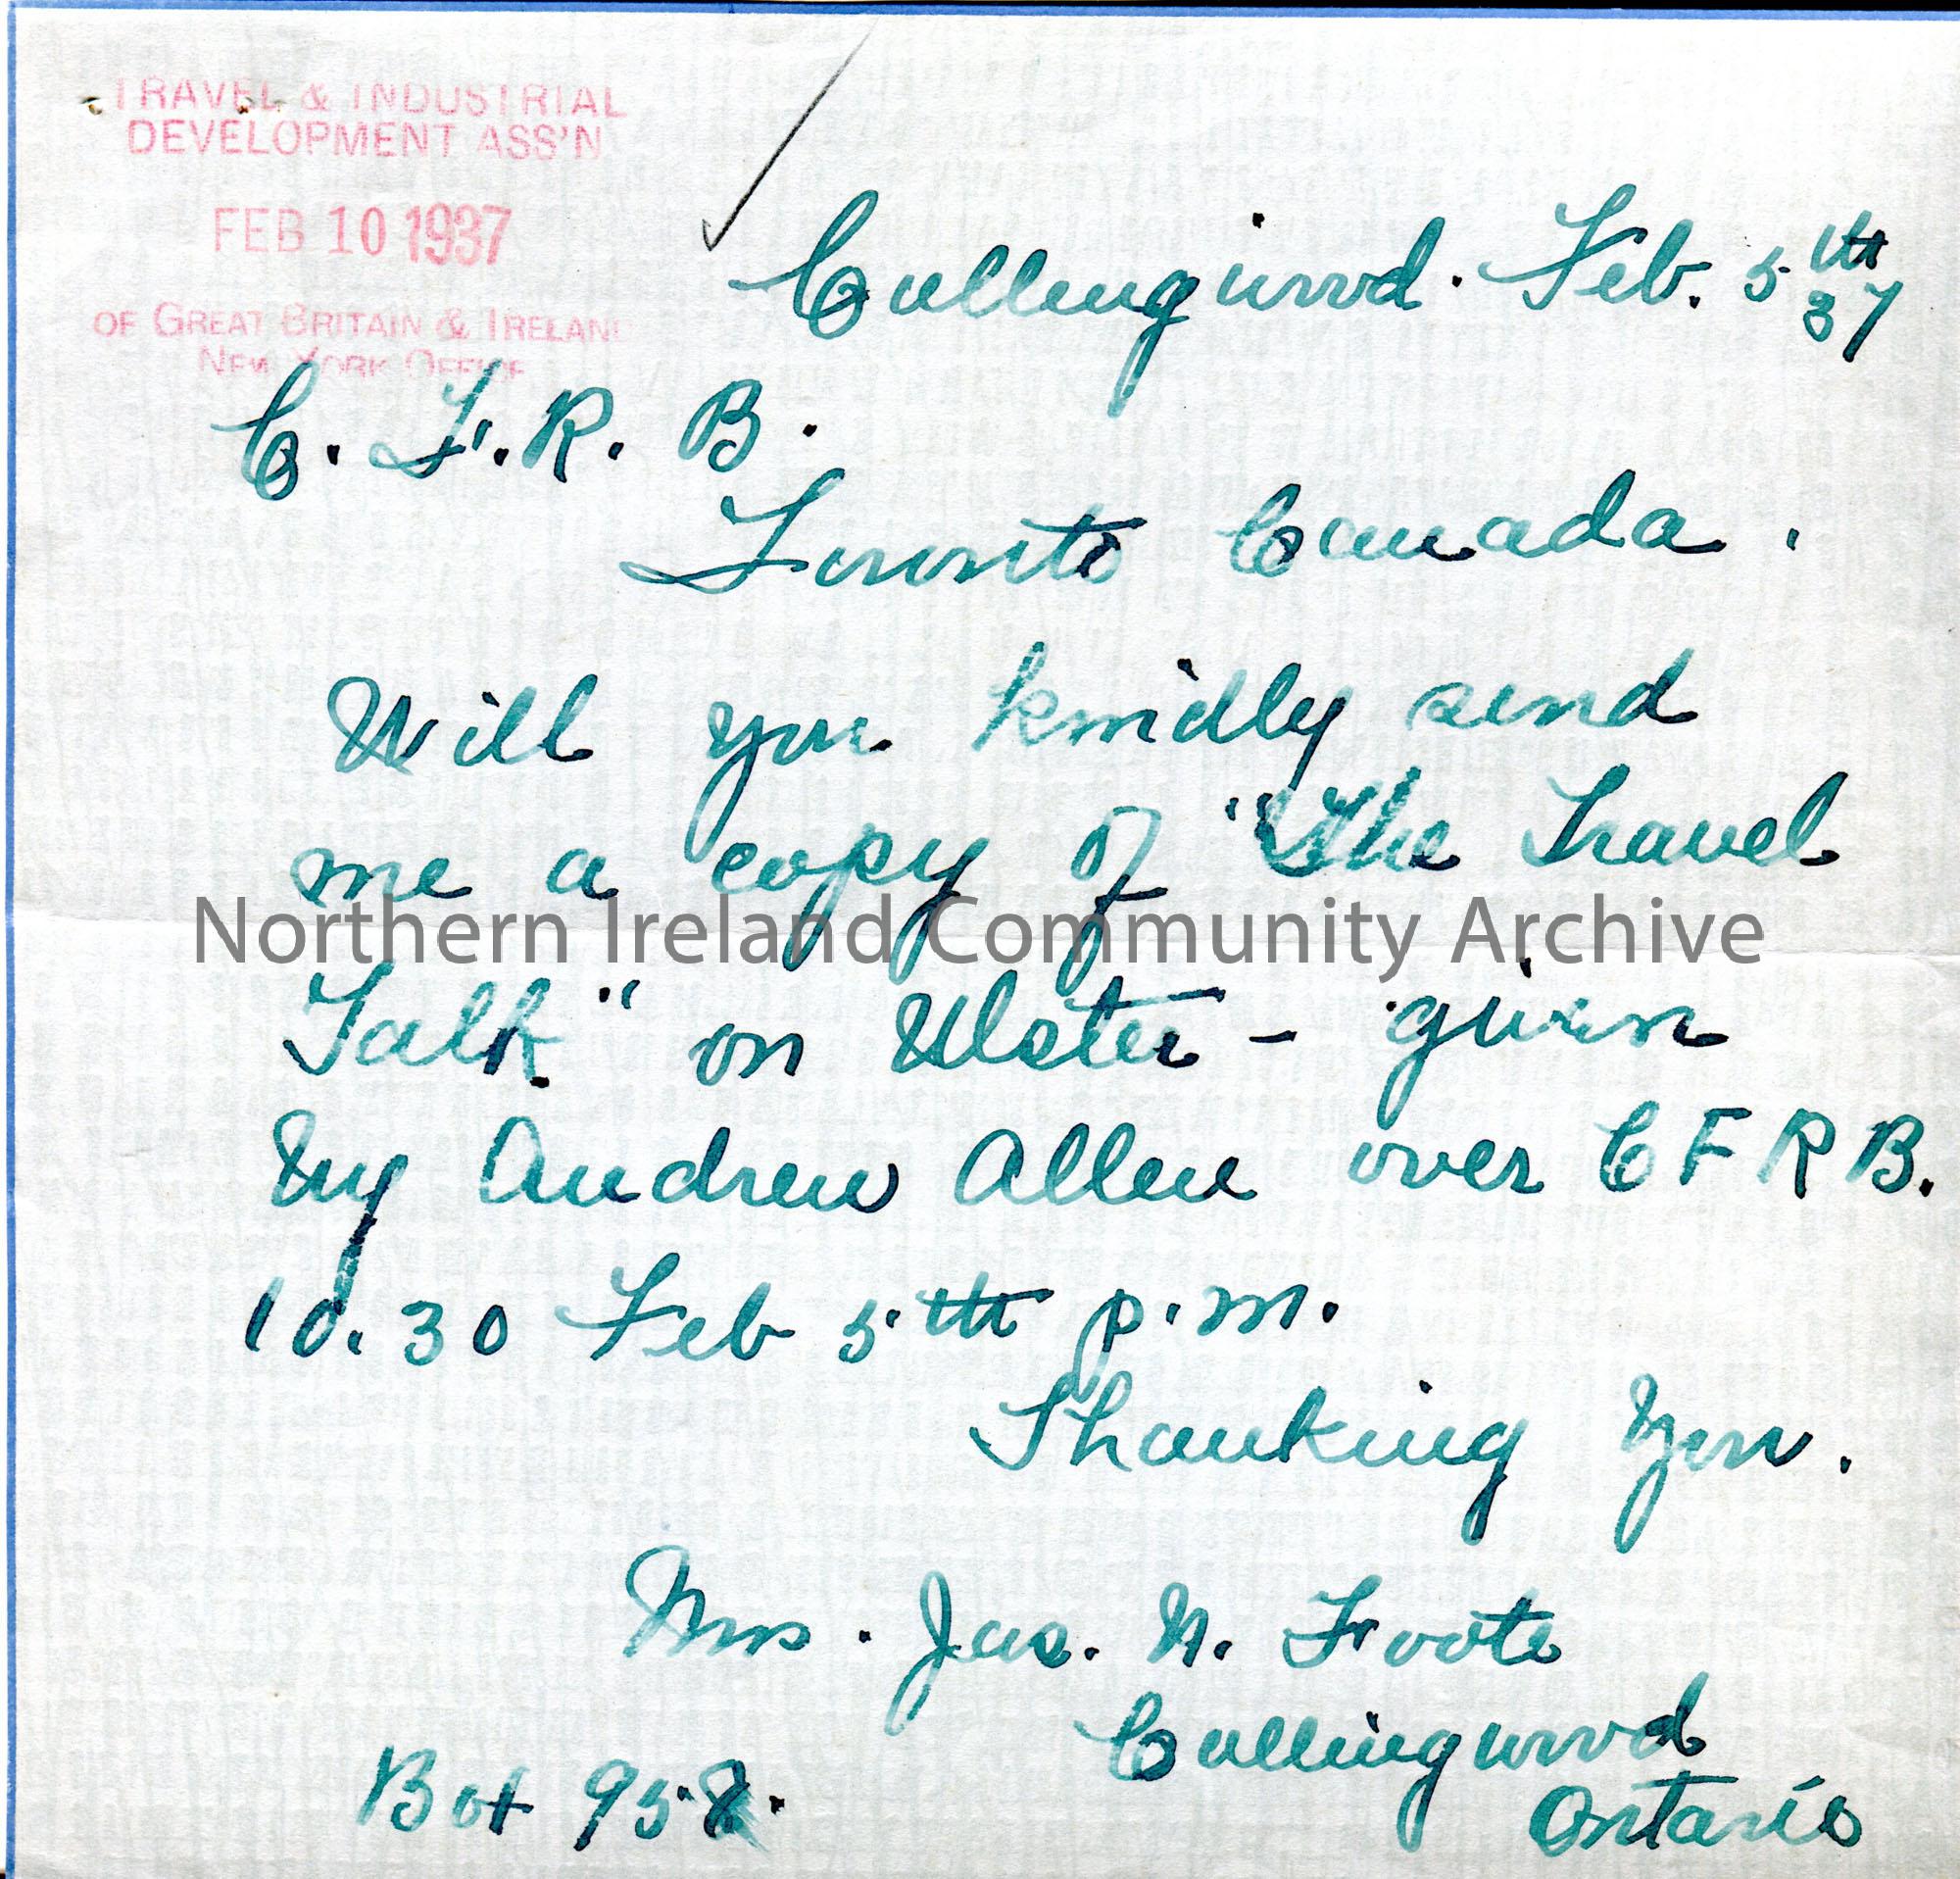 TRAVEL & INDUSTRIAL
DEVELOPMENT ASS'N
FEB 10 1937
OF GREAT BRITAIN & IRELAND
NEW YORK OFFICE
Collingwood. Feb. 5th
37
C. F. R. B.
Toronto Canada.
Will you kindly send
me a copy of "The Travel
Northern Ireland Community Archive
Talk" on Ulster - given
by Andrew Allen over C F R B.
10.30 Feb 5th p.m.
Thanking You.
Mrs. Jas. N. Foote
Collingwood
Box 958.
Ontario